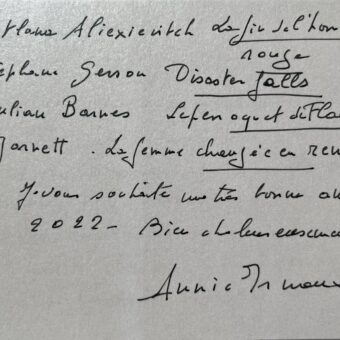 tlana Aliexievitch La fin de l'hom
rouge
éphane Gerson Disaster falls
ulian Barnes Le perroquet de Flau
Garnett. La femme changée en ren
Je vous souhaite une très bonne an
2022 - Bien chaleureusemen
Annie Ernaux